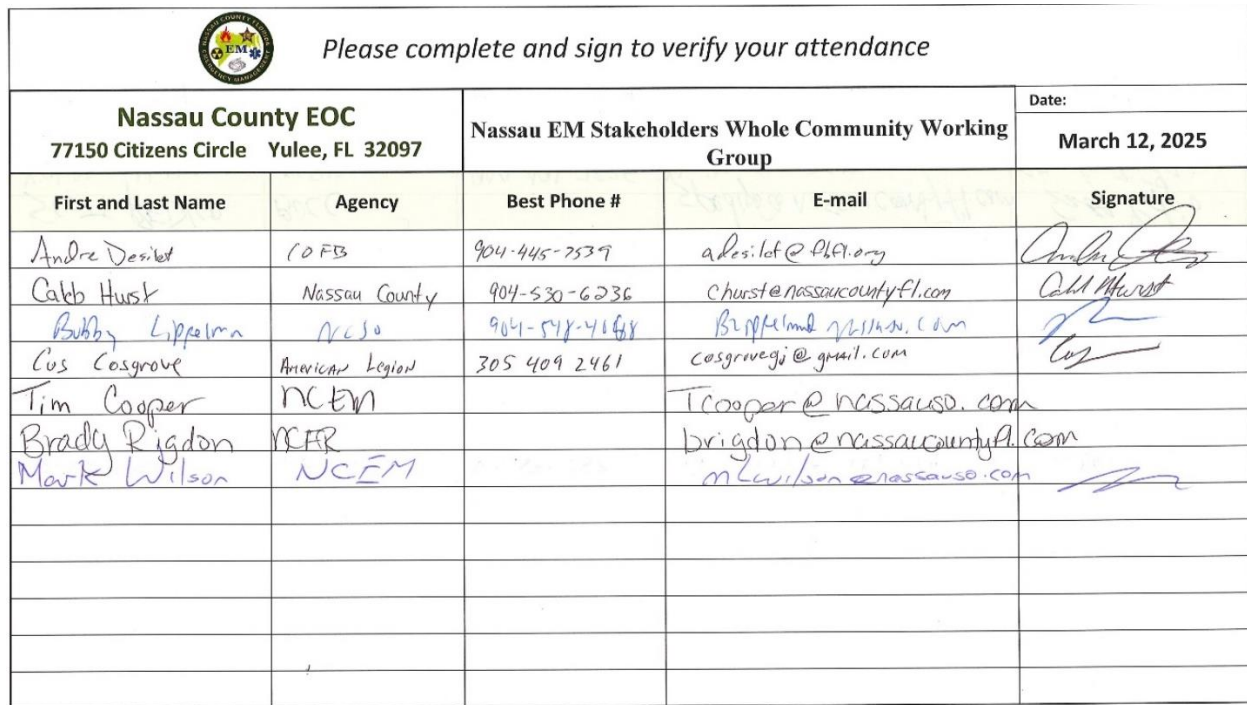 NASSAU COUNTY FLORIDA
EM
EMERGENCY MANAGEMENT
Please complete and sign to verify your attendance
Nassau County EOC
77150 Citizens Circle Yulee, FL 32097
Nassau EM Stakeholders Whole Community Working
Group
Date:
March 12, 2025
First and Last Name Agency Best Phone # E-mail Signature
Andre Desilet COFB 904-445-7539 adesilet@fbfl.org
Caleb Hurst Nassau County 904-530-6236 churst@nassaucountyfl.com Caleb Hurst
Bobby Lippelman NCSO 904-548-
Gus Cosgrove American Legion 305 409 2461 cosgrovegj@gmail.com
Tim Cooper NCEM Tcooper@nassauso.com
Brady Rigdon NCFR brigdon@nassaucountyfl.com
Mark Wilson NCEM mlwilson@nassauso.com